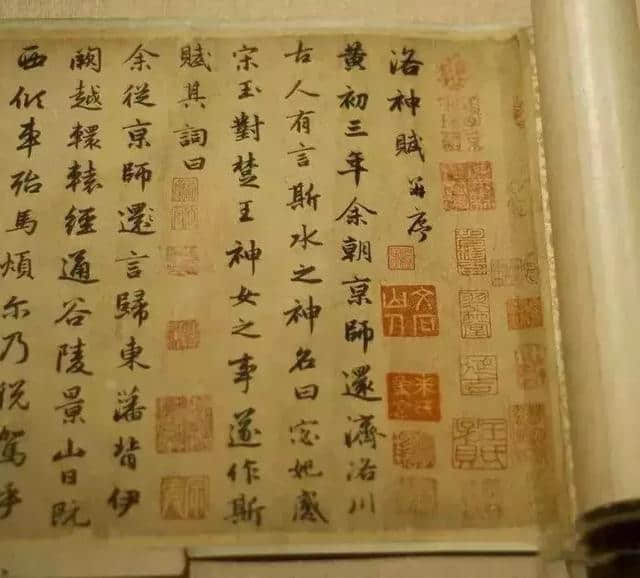 洛神賦并序
黃初三年余朝京師還濟洛川
古人有言斯水之神名曰宓妃感
宋玉對楚王神女之事遂作斯
賦其詞曰
余從京師還言歸東藩背伊
闕越轘轅經通谷陵景山日既
西傾車殆馬煩尔乃税駕乎